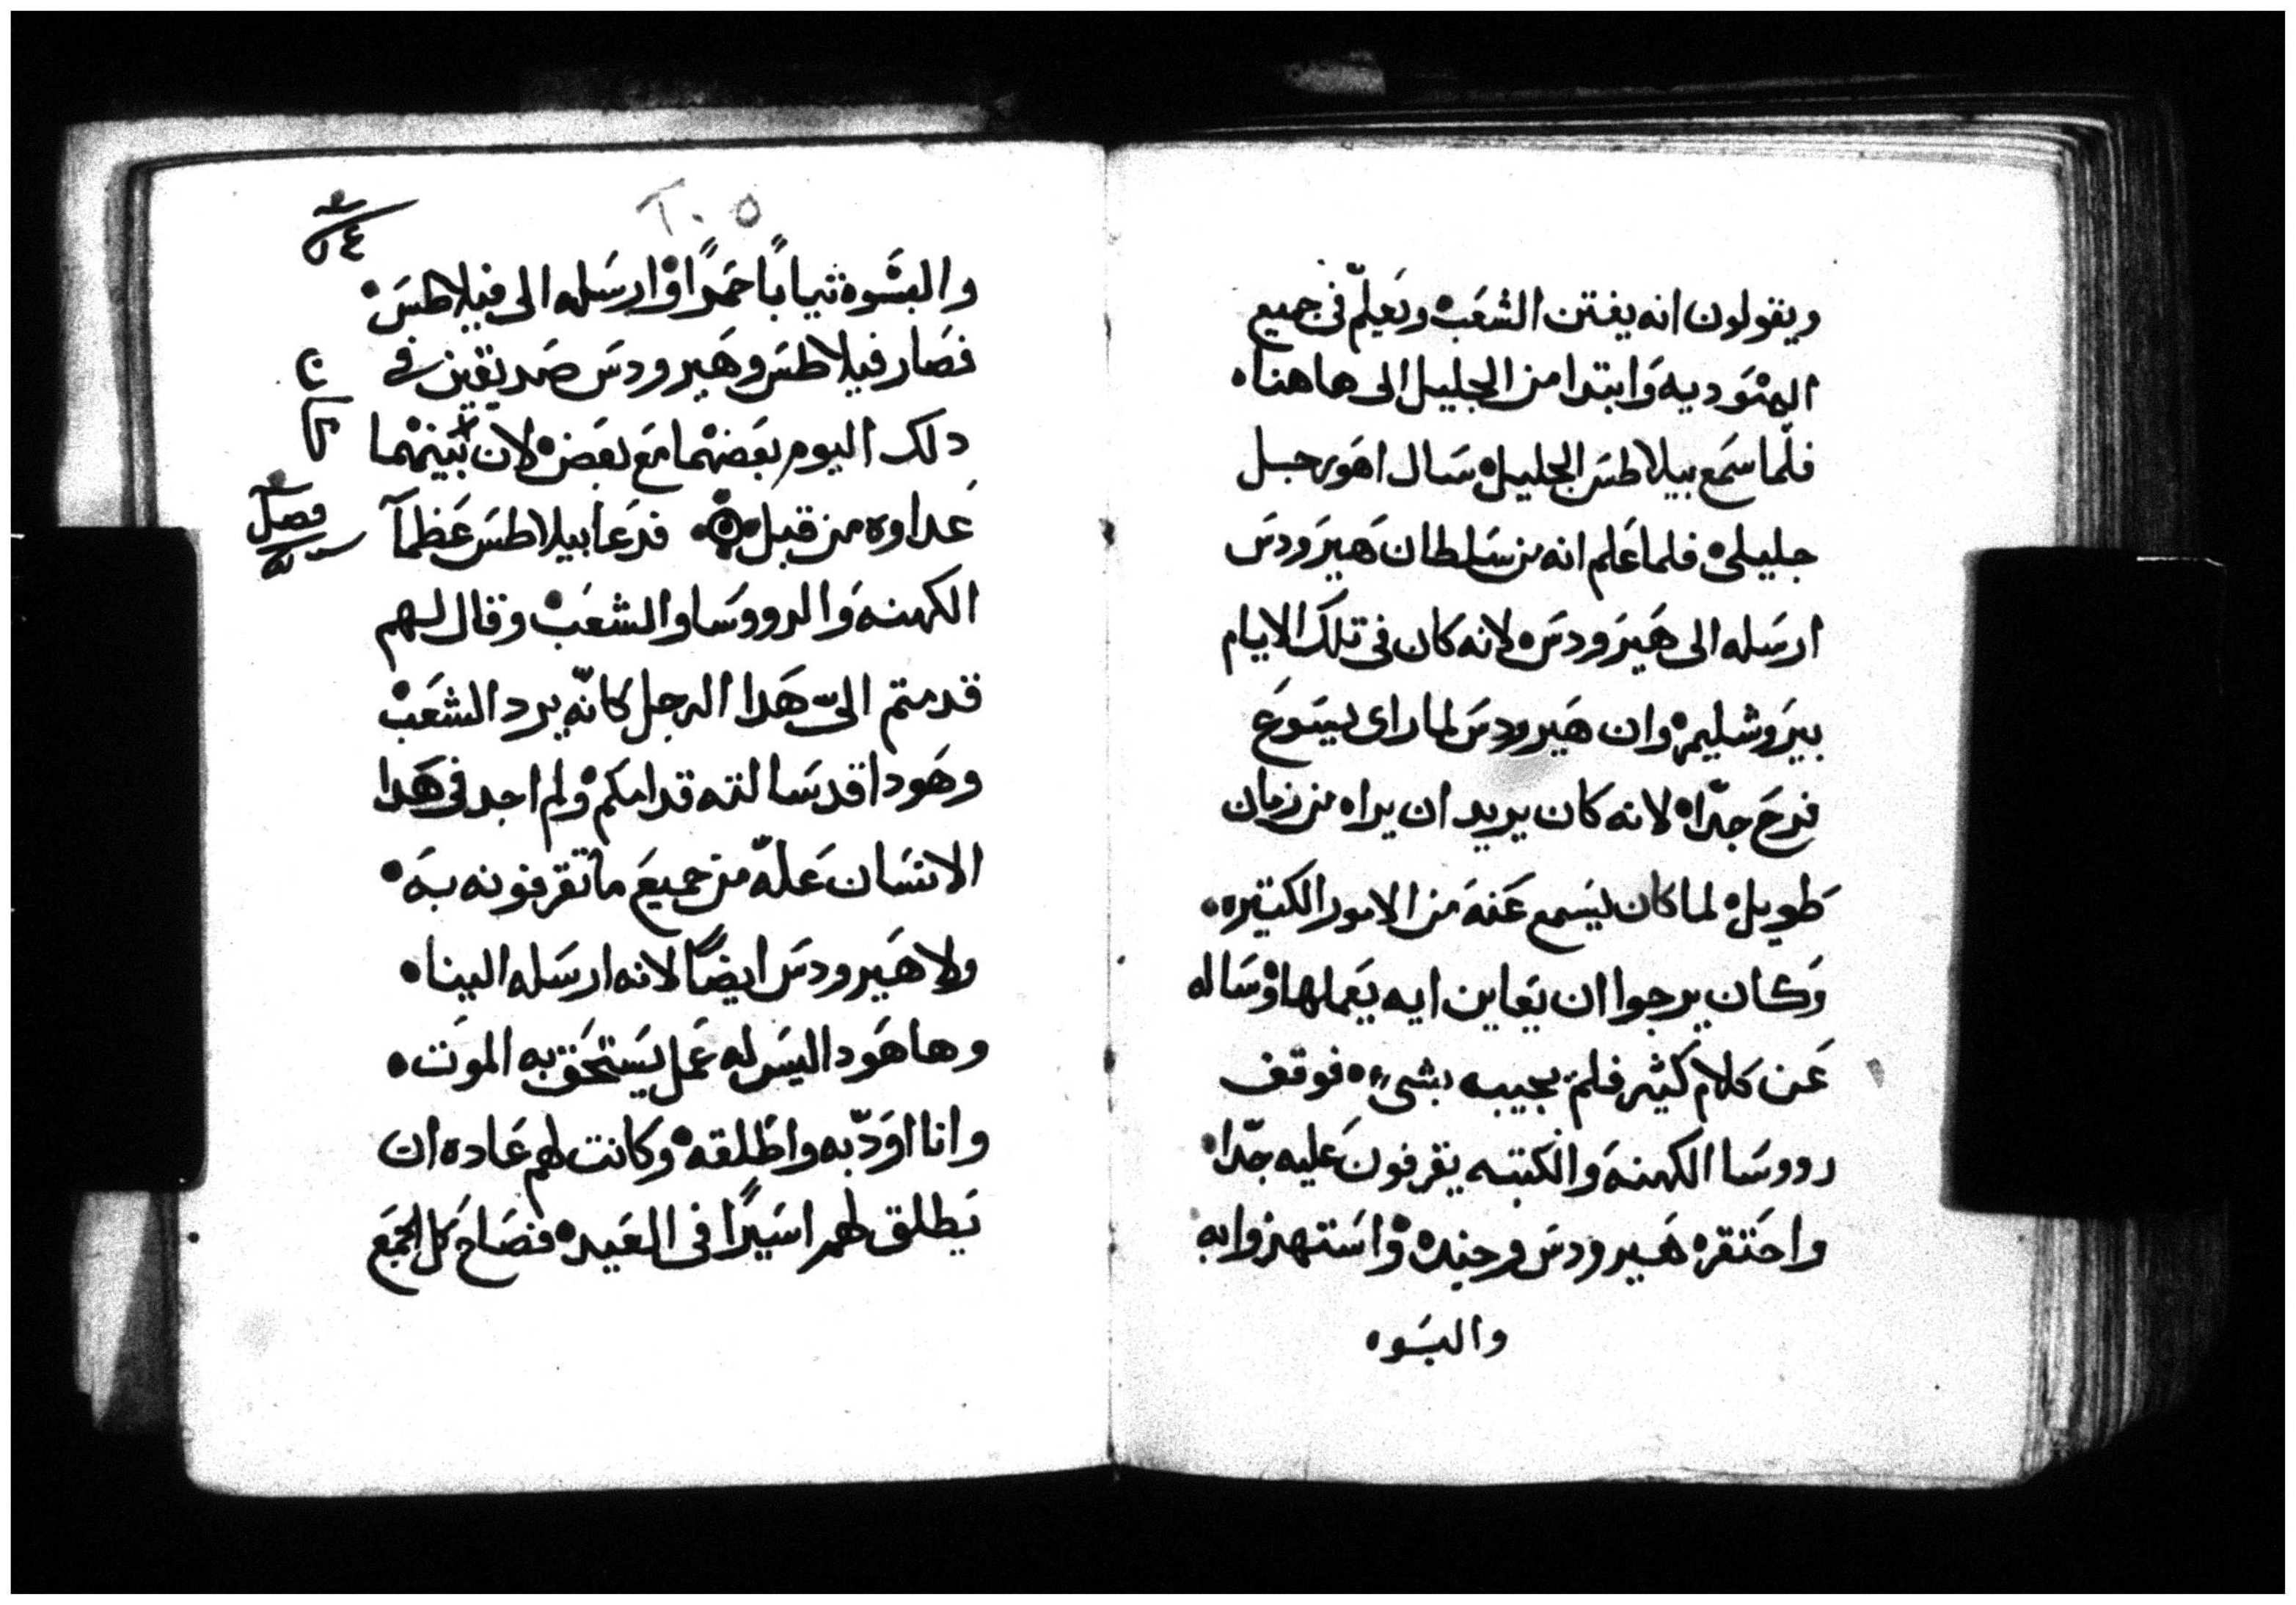 ويقولون انه يفتن الشعَب ويَعلّم فى جميع
اليهَوديه وَابتدا من الجليل الى هاهنا
فلّما سَمع بيلاطسَ الجليل سَال اهَو رجل
جليلى فلما عَلم انه من سَلطان هَيرَودسَ
ارسَله الى هَيرَودسَ لانه كان فى تلكَ الايام
بيرَوشليم وان هَيرودسَ لما راى ليسَوعَ
فرحَ جدّا لانه كان يريد ان يراه من زمان
طَويل لما كان يسَمع عَنهَ من الامور الكتيره
وَكان يرجوا ان يَعاين ايه يَعملها وسَاله
عَن كلام كَثير فلم يجيبه بشىءٍ فوقف
رووسَا الكهنهَ وَالكتبَه يقرفون عَليه جدّا
واحَتقره هَيرودسَ وجنده واسَتهزوا به
والبسَوه
٢٠٥
والبسَوه ثياباً حَمراً وارسَله الى فيلاطسَ
فصَار فيلاطسَ وهَيرودسَ صَديقين فى
دلك اليوم بعَضهما مَع بعَض لان بَينهما
عَداوه من قبل فدعَا بيلاطسَ عَظمآ
الكهنهَ وَالرووسَا والشعَب وقال لهم
قدمتم الىّ هَدا الرجل كانّه يرد الشعَب
وهَودا قد سَالته قدامكم ولم اجد فى هَدا
الانسَان عَلّه من جميعَ ما تقرفونه بهَ
ولا هَيرودسَ ايضَاً لانه ارسَله الينا
وها هَودا ليسَ له عَمل يسَتحَق به الموَت
وانا اوَدّبه واطَلقه وكَانت لهم عَاده ان
يَطلق لهم اسَيراً فى العَيد فصَاحَ كل الجمَع
فصل